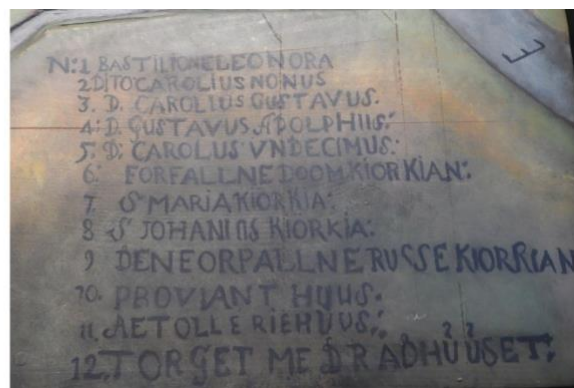 N:1 BASTILIONELEONORA
2 DITO CAROLIUS NONUS
3. D. CAROLIUS GUSTAVUS.
4: D. GUSTAVUS ADOLPHUS:
5. D: CAROLUS VNDECIMUS:
6: FORFALLNE DOOM KIORKIAN:
7 S MARIA KIORKIA:
8 S JOHANIIS KIORKIA:
9 DENEORPALLNE RUSSE KIORKIAN
10. PROVIANT HUUS.
11. AETOLLERIEHUUS:
12. TORGET MEDRADHUUSET:
E